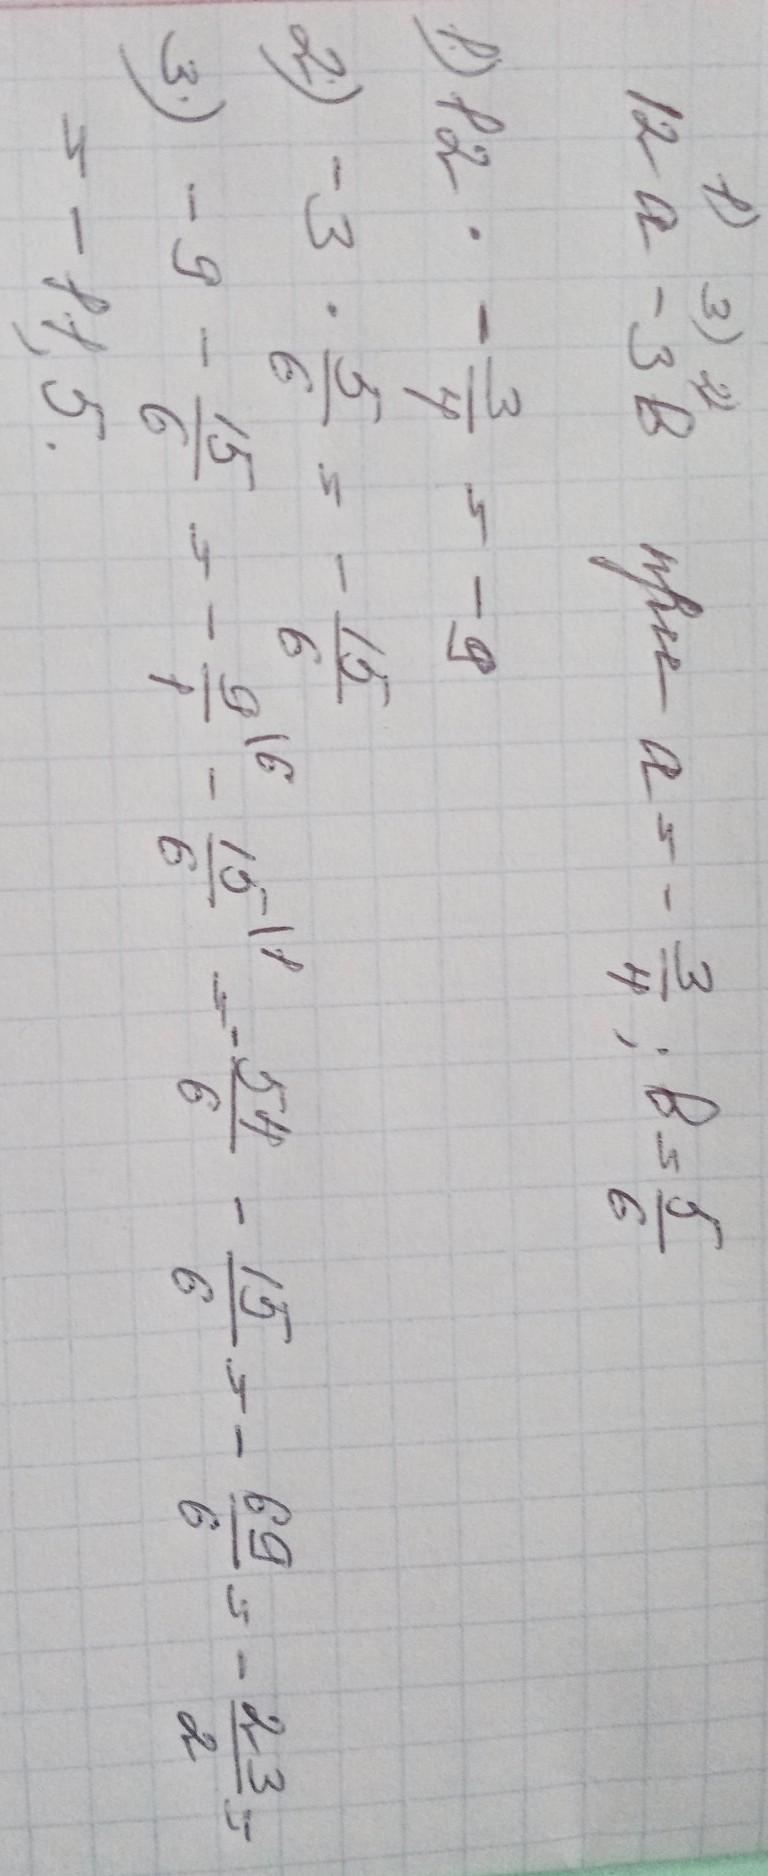 1) 3) 2)
12a - 3в при a = - 3/4 ; в = 5/6
1) 12 · - 3/4 = - 9
2) - 3 · 5/6 = - 15/6
3) - 9 - 15/6 = - 9/1 \6 - 15/6 \1 = - 54/6 - 15/6 = - 69/6 = - 23/2 =
= - 11,5.